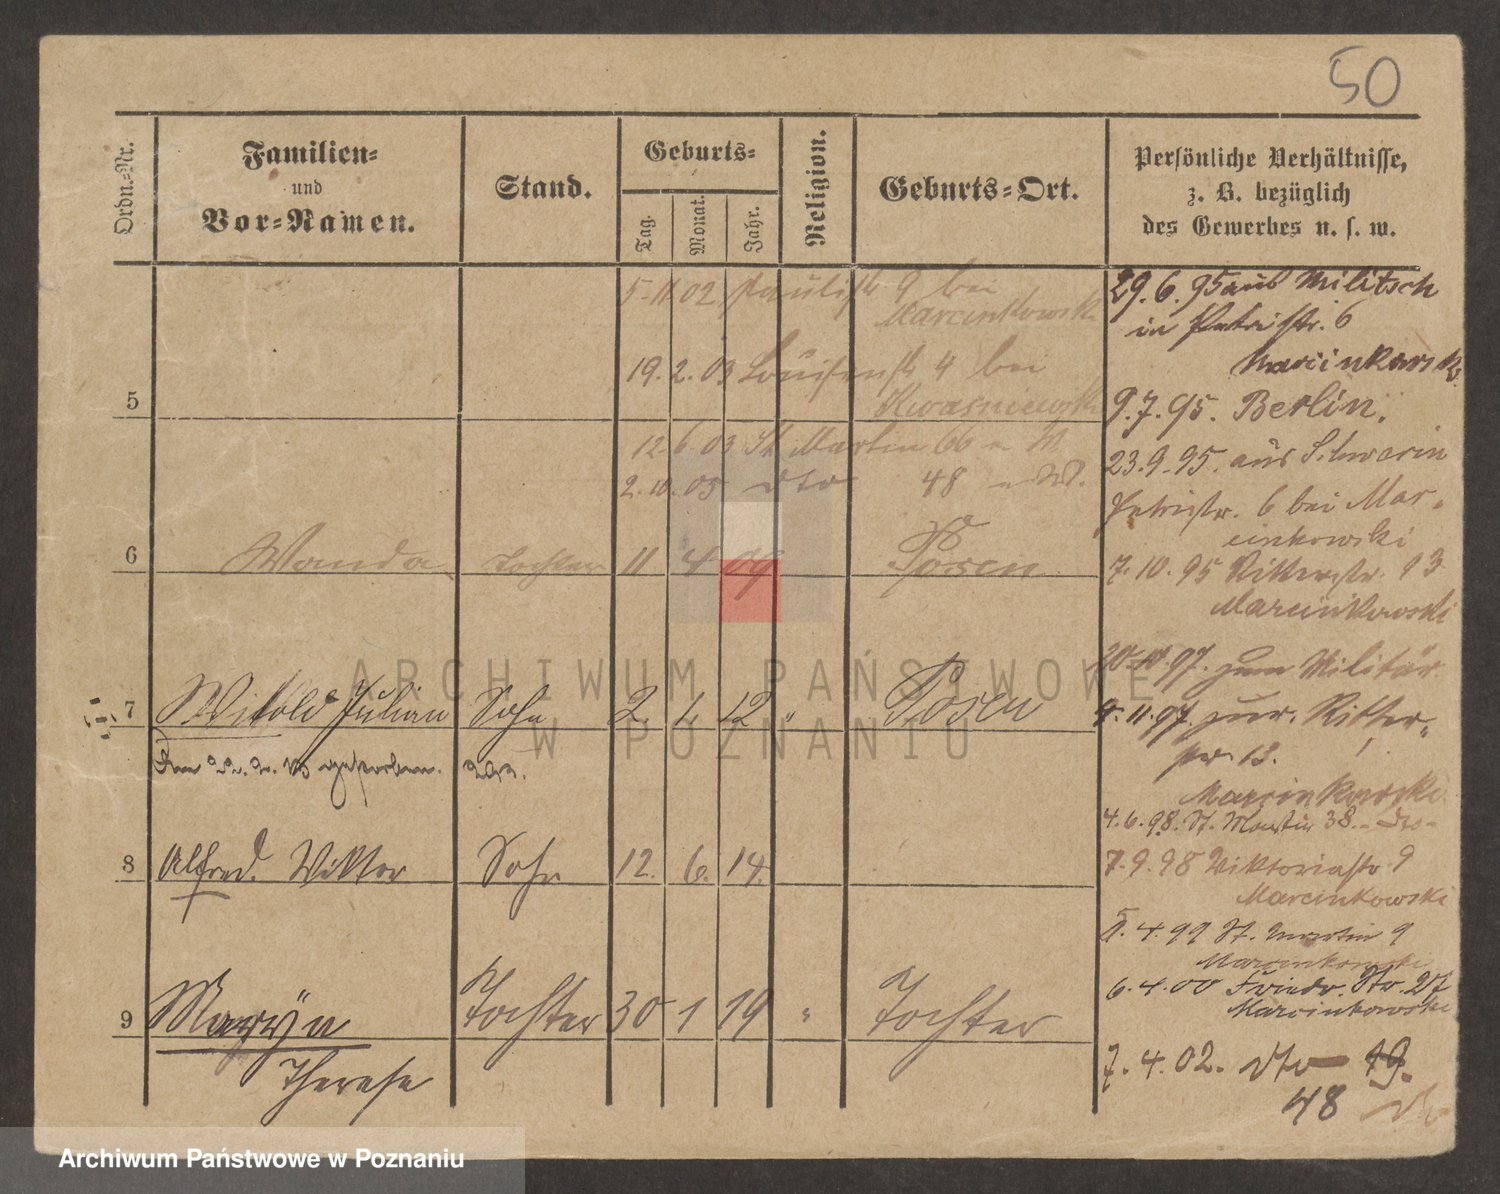 50
Ordn.-Nr.
Familien-
und
Vor-Namen.
Stand.
Geburts-
Tag.
Monat.
Jahr.
Religion.
Geburts-Ort.
Persönliche Verhältnisse,
z. B. bezüglich
des Gewerbes u. s. w.
5.11.02 Paulistr 9 bei
Marcinkowski
19.2.03 Louisenstr 4 bei
Kwasniewski
5
12.6.03 St. Martin 66
2.10.05 dto 48
6 Wanda Tochter 11 4 09 Posen
7 Witold Julian Sohn 2. 1. 12 " Posen
Am 22.2.13 gestorben.
8 Alfred. Viktor Sohn 12. 6. 14.
9 Maryja Tochter 30 1 19 " Tochter
Therese
29.6.95 aus Militsch
in Petristr. 6
Marcinkowski
9.7.95. Berlin.
23.9.95. aus Schwerin
Petristr. 6 bei Mar-
cinkowski
7.10.95 Ritterstr. 13
Marcinkowski
20.10.97. zum Militär
9.11.97. zur. Ritter-
str 13.
Marcinkowski
4.6.98. St. Martin 38. - dto -
7.9.98 Viktoriastr 9
Marcinkowski
5.4.99 St. Martin 9
Marcinkowski
6.4.00 Friedr. Str. 27
Marcinkowski
7.4.02. dto 19.
48
ARCHIWUM PAŃSTWOWE
W POZNANIU
Archiwum Państwowe w Poznaniu